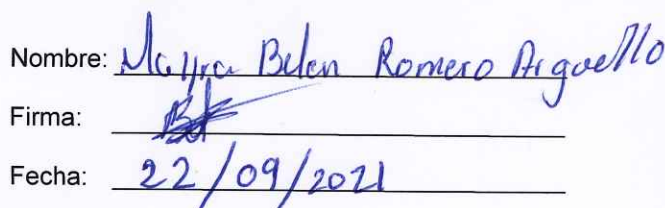 Nombre: Mayra Belen Romero Arguello
Firma:
Fecha: 22/09/2021